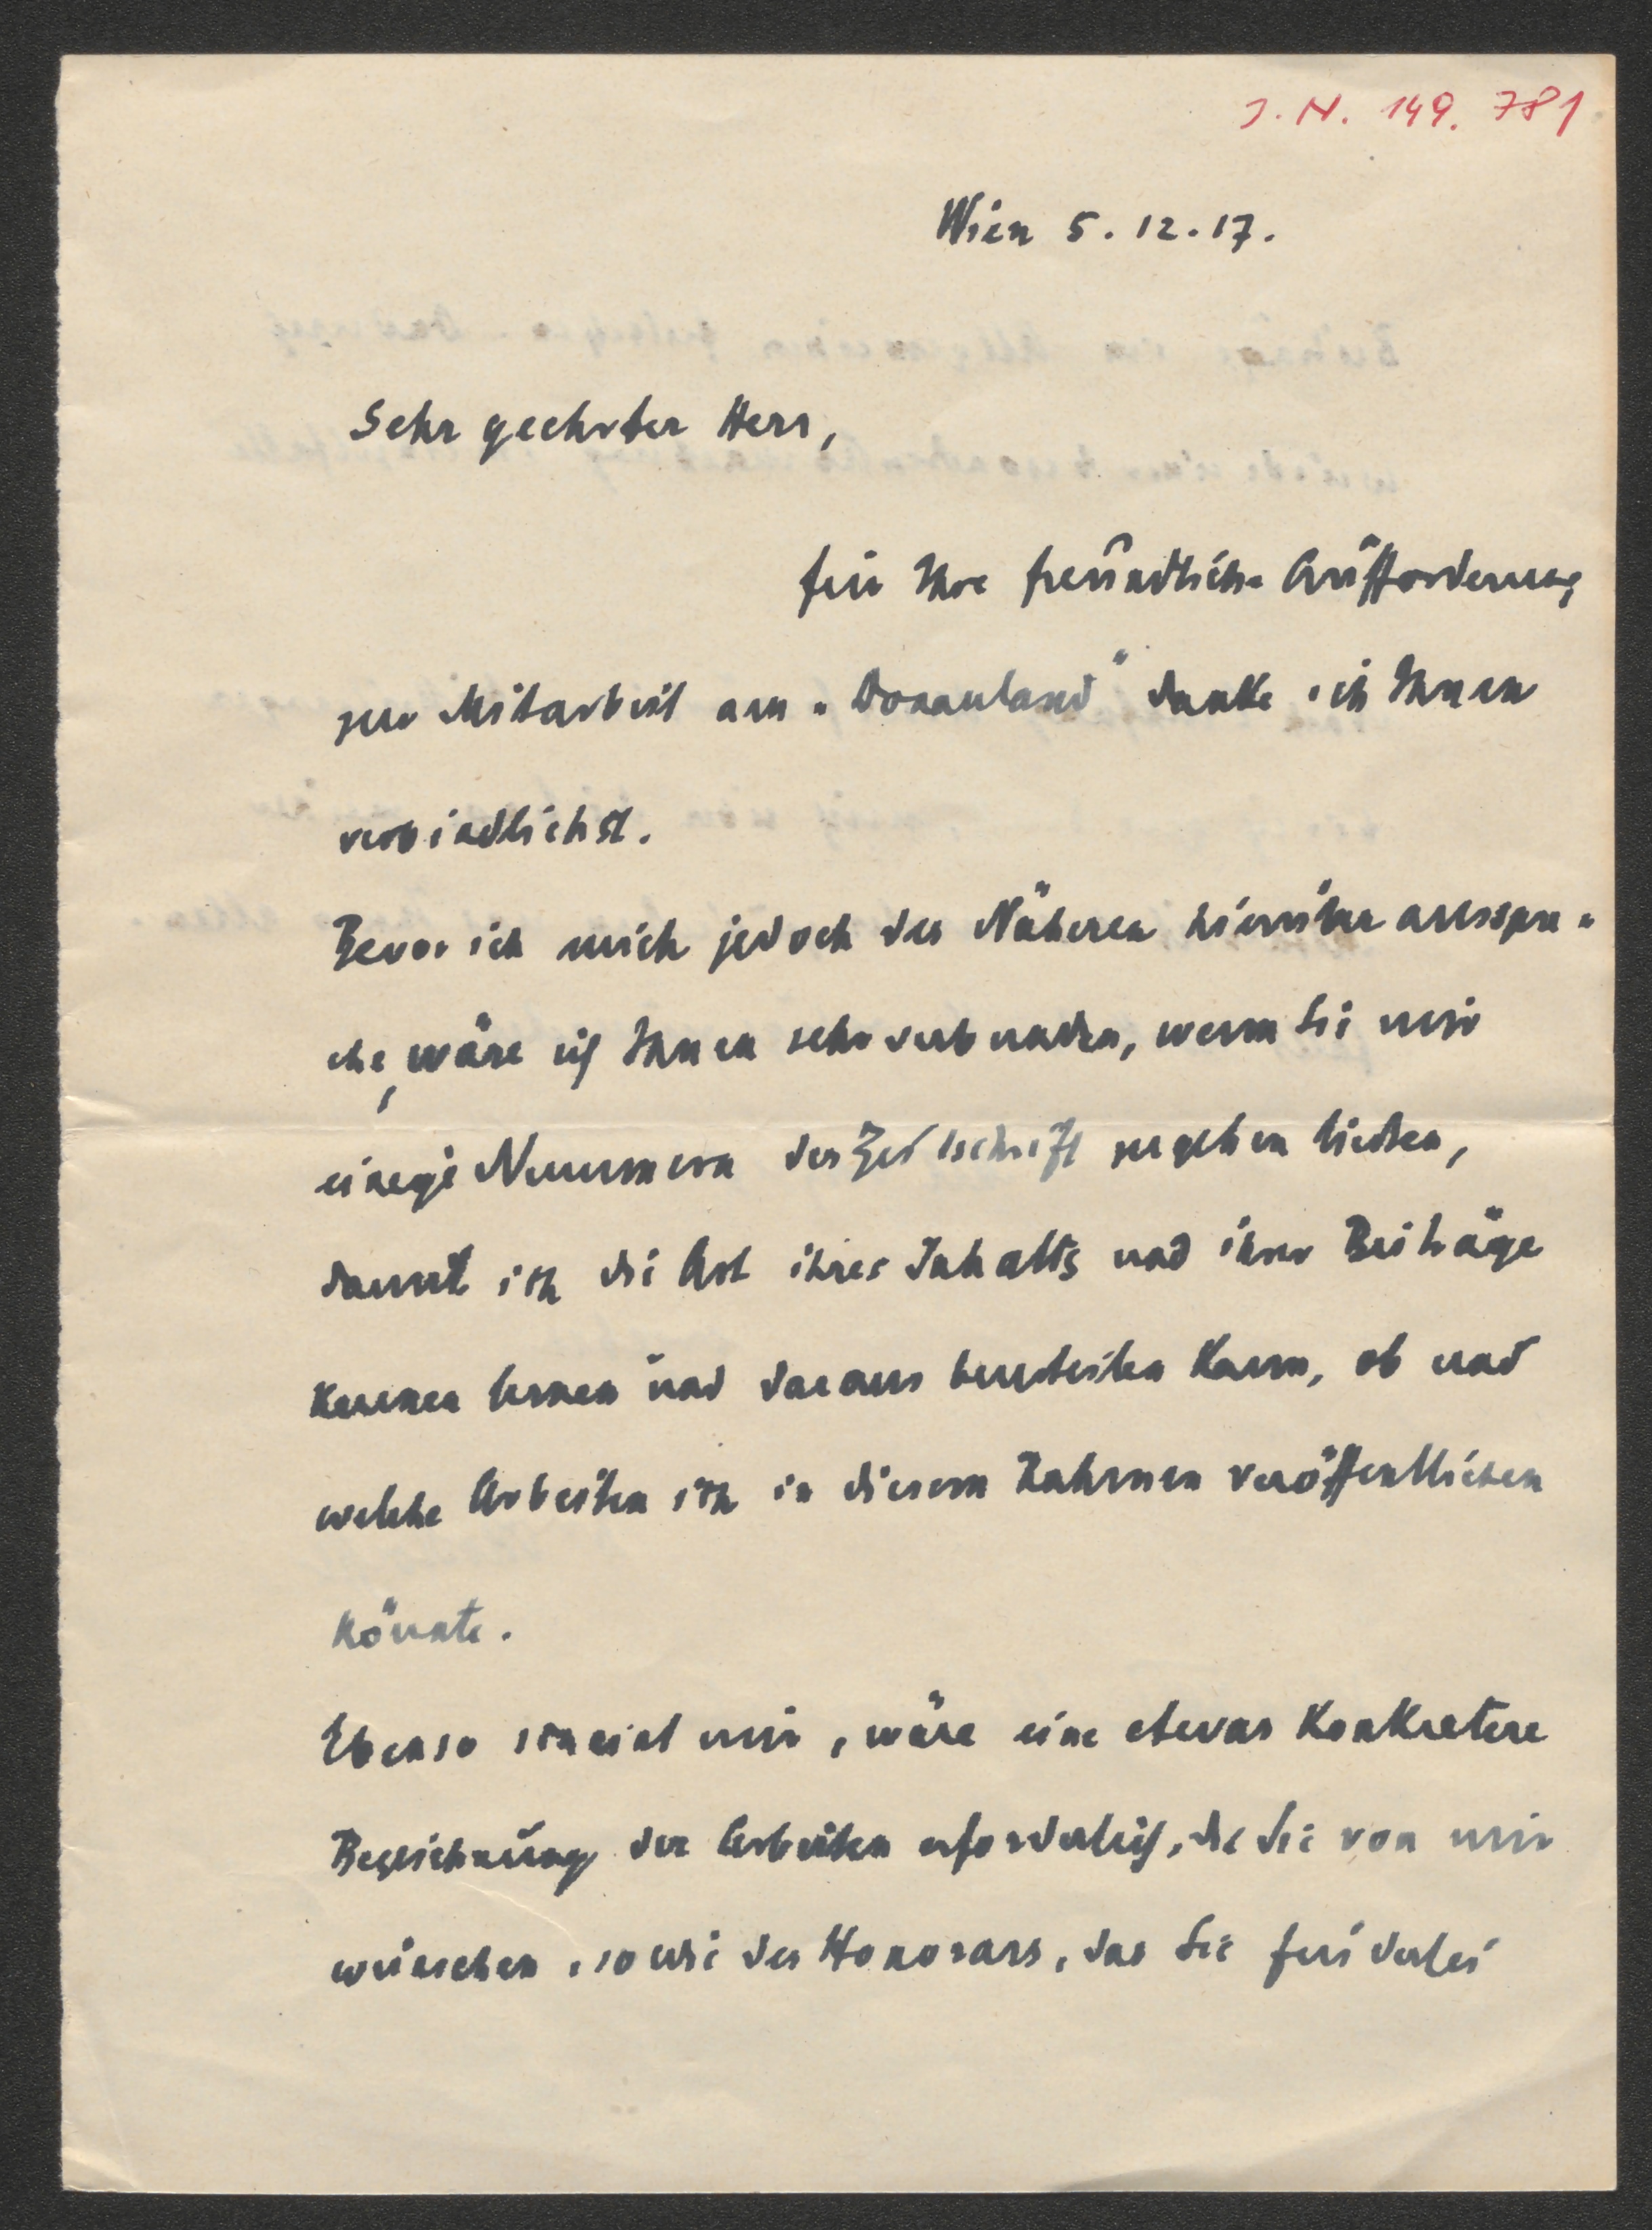 J. N. 149. 781
Wien 5. 12. 17.
Sehr geehrter Herr,
für Ihre freundliche Aufforderung
zur Mitarbeit am „Donauland" danke ich Ihnen
verbindlichst.
Bevor ich mich jedoch des Näheren hierüber ausspre-
che, wäre ich Ihnen sehr verbunden, wenn Sie mir
einige Nummern der Zeitschrift zugehen ließen,
damit ich die Art ihres Inhalts und ihrer Beiträge
kennen lernen und daraus beurteilen kann, ob und
welche Arbeiten ich in diesem Rahmen veröffentlichen
könnte.
Ebenso scheint mir, wäre eine etwas konkretere
Bezeichnung der Arbeiten erforderlich, die Sie von mir
wünschen, sowie des Honorars, das Sie für derlei